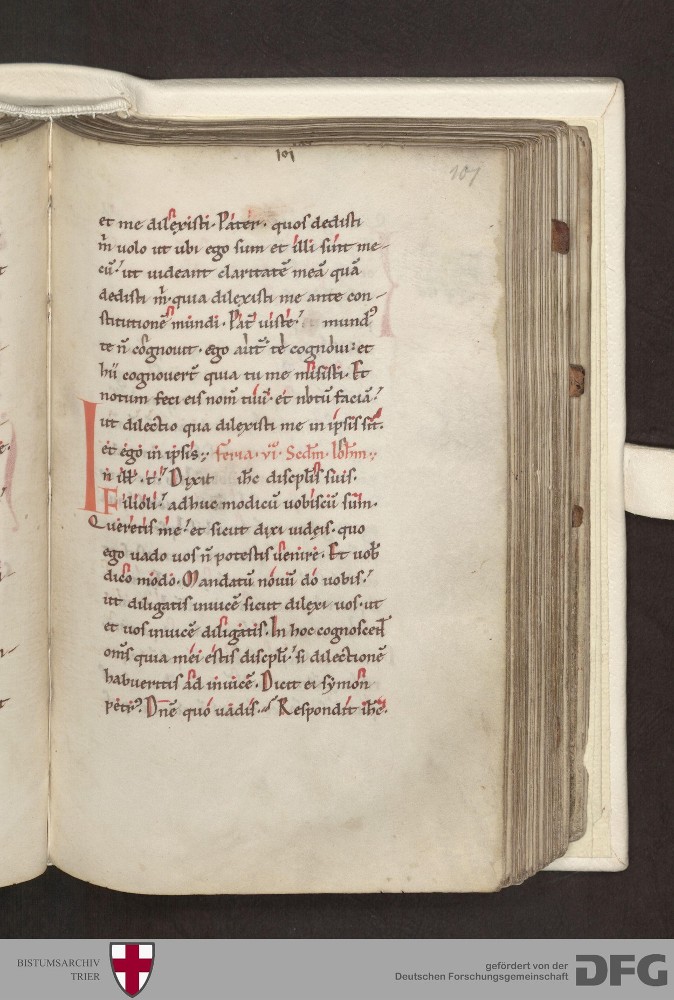 101
101
et me dilexisti. Pater. quos dedisti
m̄ uolo ut ubi ego sum et illi sint me-
cū. ut uideant claritatē meā quā
dedisti m̄. quia dilexisti me ante con-
stitutionē mundi. Pat̄ iuste. mundꝰ
te n̄ cognouit. ego aūt te cognoui. et
hii cognouer̄t quia tu me misisti. Et
notum feci eis nom̄ tuū. et notū faciā.
ut dilectio qua dilexisti me in ipsis sit.
et ego in ipsis. feria. vi. Secdm̄. Ioh̄m.
In ill̄. t̄. Dixit ih̄c discipl̄is suis.
Filioli. adhuc modicū uobiscū sum.
Queretis me. et sicut dixi iudeis. quo
ego uado uos n̄ potestis uenire. Et uob̄
dico modo. Mandatū nouū do uobis.
ut diligatis inuicē sicut dilexi uos. ut
et uos inuicē diligatis. In hoc cognoscent̄
om̄s quia mei estis discipl̄i. si dilectionē
habueritis ad inuicē. Dicit ei symon
petrꝰ. Dn̄e quo uadis. Respondit ih̄c.
BISTUMSARCHIV
TRIER
gefördert von der
Deutschen Forschungsgemeinschaft
DFG